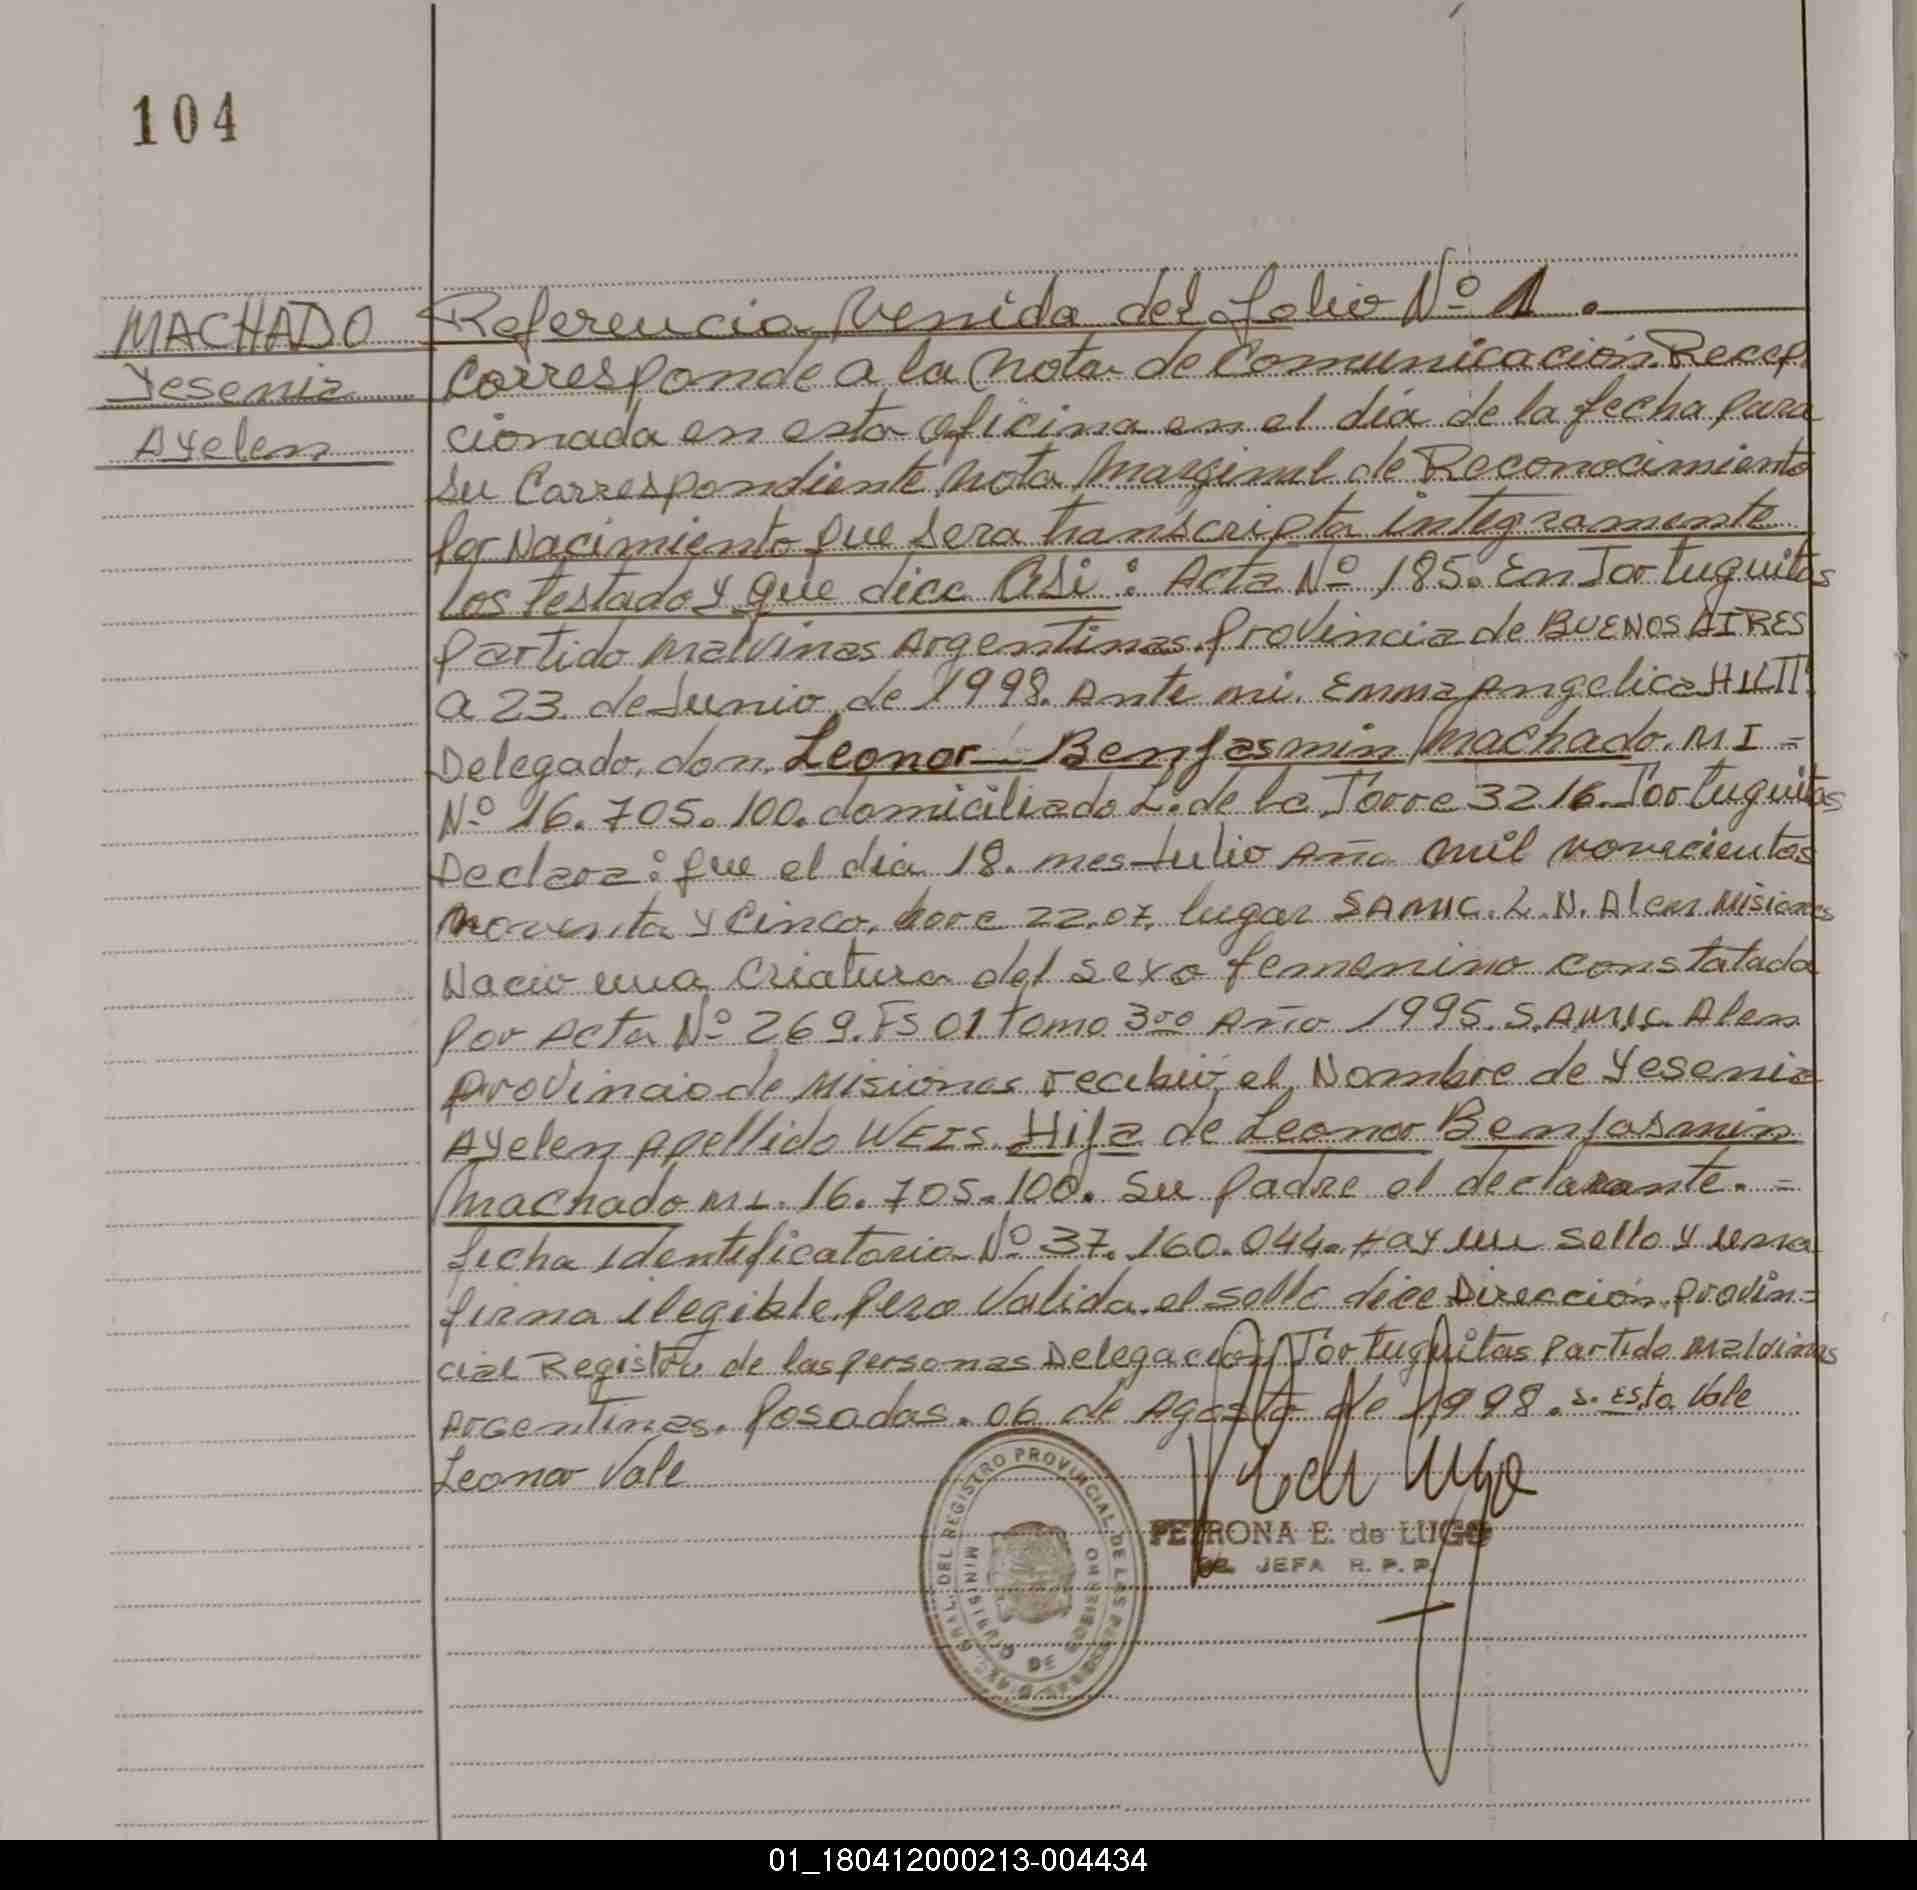 104
MACHADO
Yesenia
Ayelen
Referencia Venida del folio Nº 1.
Corresponde a la Nota de Comunicación Recep
cionada en esta oficina en el día de la fecha para
su Correspondiente Nota Marginal de Reconocimiento
por Nacimiento que sera transcripta integramente
los testado y que dice Asi: Acta Nº 185. En Tortuguitas
partido Malvinas Argentinas. Provincia de BUENOS AIRES
a 23 de Junio de 1998. Ante mi. Emma Angelica
Delegado, don. Leonor Benjasmin Machado. M I =
Nº 16.705.100. domiciliado L. de la Torre 3216. Tortuguitas
Declara: que el dia 18. mes Julio Año mil novecientos
noventa y Cinco. hora 22.07. lugar SAMIC. L. N. Alem Misiones
Nacio una Criatura del sexo femenino constatada
por Acta Nº 269. Fs 01 tomo 3ro Año 1995. S.AMIC. Alem
Provincia de Misiones recibió el Nombre de Yesenia
Ayelen Apellido WEIS. Hija de Leonor Benjasmin
Machado M I. 16.705.100. Su padre el declarante. =
ficha identificatoria Nº 37.160.044. Hay un sello y una
firma ilegible pero Valida. el sello dice Dirección provin=
cial Registro de las personas Delegación Tortuguitas Partido Malvinas
Argentinas. Posadas. 06 de Agosto de 1998. s. Esto Vale
Leonor Vale
PETRONA E. de LUGO
JEFA R. P. P.
GRAL. DEL REGISTRO PROVINCIAL DE LAS PERSONAS
MINISTERIO DE GOBIERNO
01_180412000213-004434